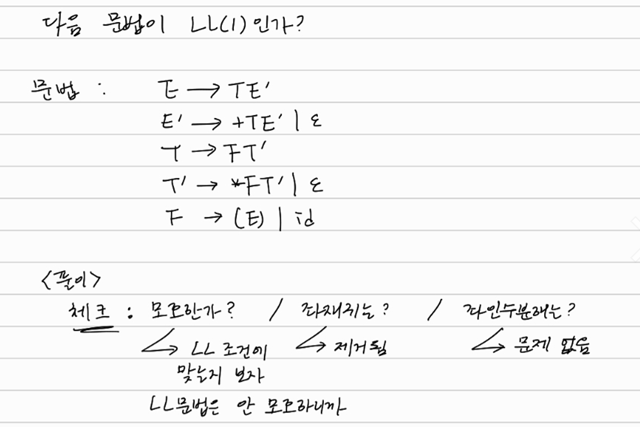 다음 문법이 LL(1)인가?
문법 : E → TE'
E' → +TE' | ε
T → FT'
T' → *FT' | ε
F → (E) | id
<풀이>
체크 : 모호한가? / 좌재귀는? / 좌인수분해는?
LL 조건에 제거됨 문제 없음
맞는지 보자
LL문법은 안 모호하니까